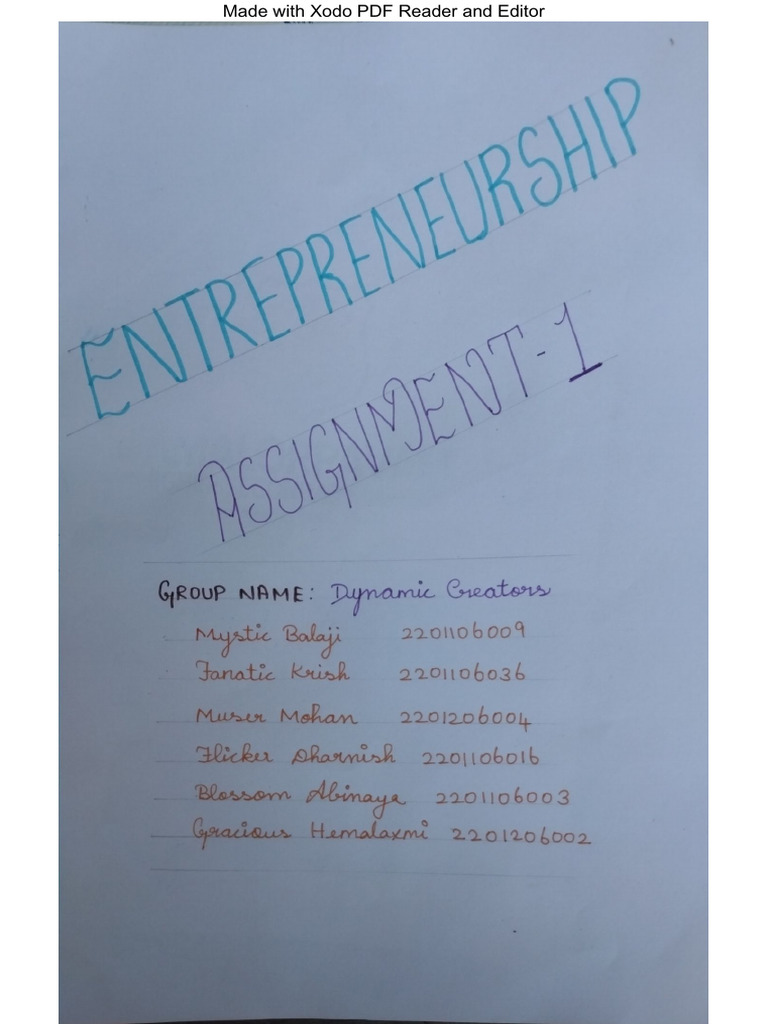 Made with Xodo PDF Reader and Editor
ENTREPRENEURSHIP
ASSIGNMENT-1
GROUP NAME: Dynamic Creators
Mystic Balaji 2201106009
Fanatic Krish 2201106036
Muser Mohan 2201206004
Flicker Dharnish 2201106016
Blossom Abinaya 2201106003
Gracious Hemalaxmi 2201206002